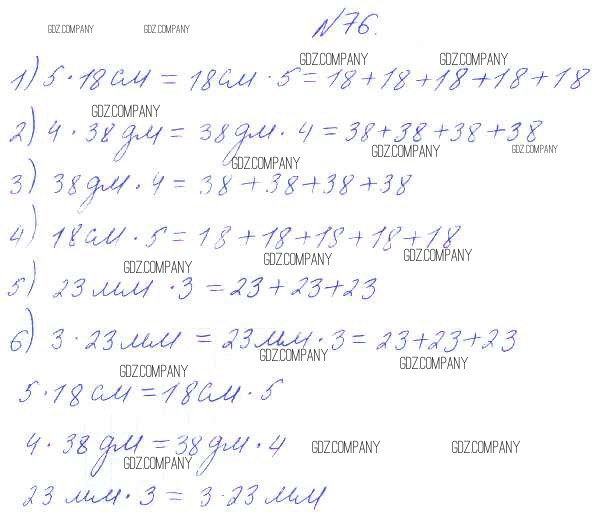 №76.
GDZ.COMPANY GDZ.COMPANY
GDZ.COMPANY GDZ.COMPANY
1) 5 · 18 см = 18 см · 5 = 18 + 18 + 18 + 18 + 18
GDZ.COMPANY
2) 4 · 38 дм = 38 дм · 4 = 38 + 38 + 38 + 38
GDZ.COMPANY GDZ.COMPANY GDZ.COMPANY
3) 38 дм · 4 = 38 + 38 + 38 + 38
4) 18 см · 5 = 18 + 18 + 18 + 18 + 18
GDZ.COMPANY GDZ.COMPANY GDZ.COMPANY
5) 23 мм · 3 = 23 + 23 + 23
6) 3 · 23 мм = 23 мм · 3 = 23 + 23 + 23
GDZ.COMPANY GDZ.COMPANY GDZ.COMPANY
5 · 18 см = 18 см · 5
4 · 38 дм = 38 дм · 4
GDZ.COMPANY GDZ.COMPANY GDZ.COMPANY
23 мм · 3 = 3 · 23 мм